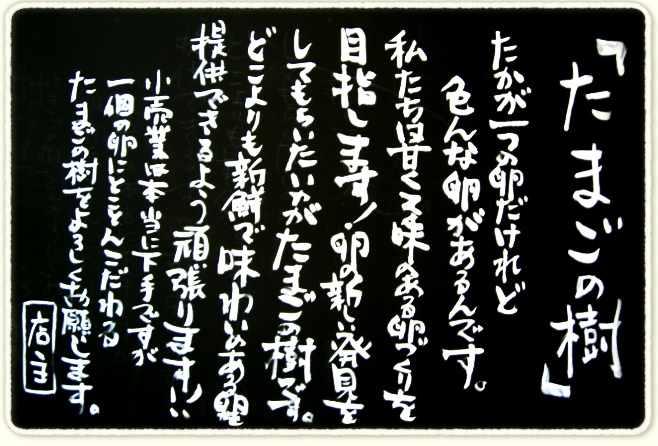 「たまごの樹」
たかが一つの卵だけれど
色んな卵があるんです。
私たちは甘くて味のある卵づくりを
目指します!卵の新しい発見を
してもらいたいのがたまごの樹です。
どこよりも新鮮で味わいのある卵を
提供できるよう頑張ります!!
小売業は本当に下手ですが
一個の卵にとことんこだわる
たまごの樹をよろしくお願します。
店主